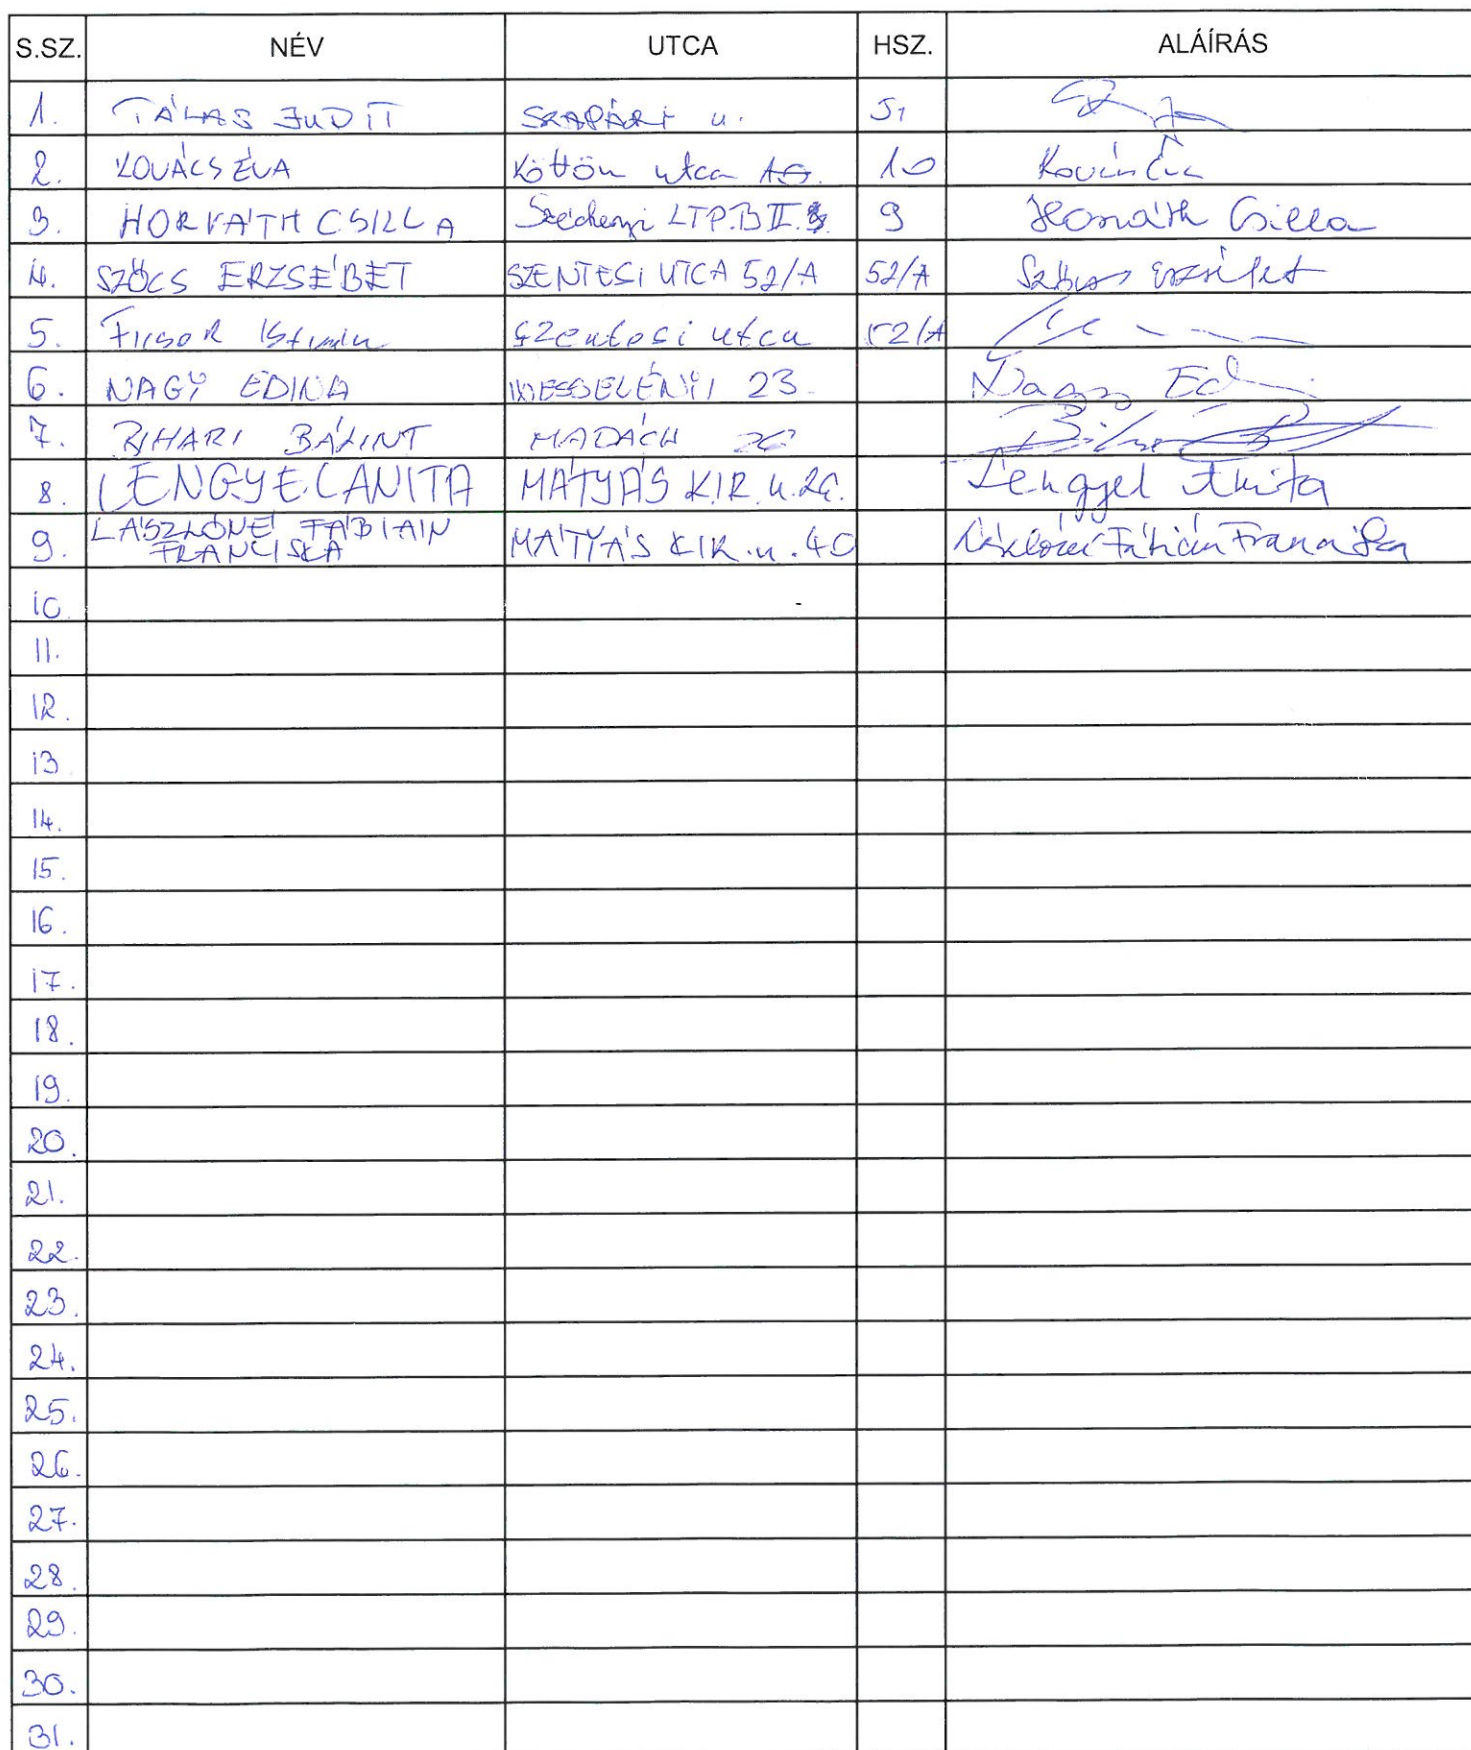 S.SZ. NÉV UTCA HSZ. ALÁÍRÁS
1. TÁLAS JUDIT SZAPÁRI u. 51
2. KOVÁCS ÉVA Köttön utca 10. 10 Kovács Éva
3. HORVÁTH CSILLA Széchenyi LTP. B II. 9 Horváth Csilla
4. SZŐCS ERZSÉBET SZENTESI UTCA 52/A 52/A Szőcs Erzsébet
5. Ficsor István Szentesi utca 52/A
6. NAGY EDINA WESSELÉNYI 23. Nagy Edi
7. BIHARI BÁLINT MADÁCH
8. LENGYEL ANITA MÁTYÁS KIR. u. 26. Lengyel Anita
9. LÁSZLÓNÉ FÁBIÁN
FRANCISKA MÁTYÁS KIR. u. 40 Lászlóné Fábián Franciska
10
11.
12.
13
14.
15.
16.
17.
18.
19.
20.
21.
22.
23.
24.
25.
26.
27.
28.
29.
30.
31.